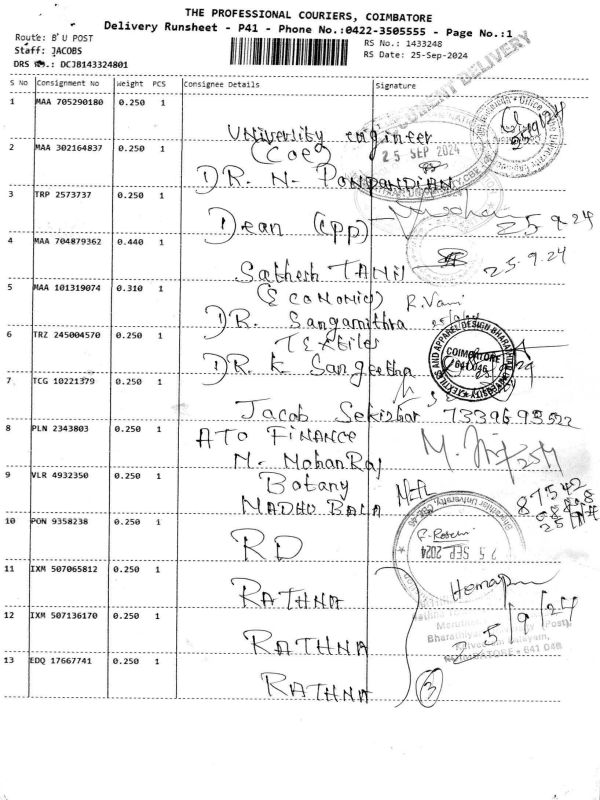 THE PROFESSIONAL COURIERS, COIMBATORE
Delivery Runsheet - P41 - Phone No.:0422-3505555 - Page No.:1
Route: B U POST
Staff: JACOBS
DRS No.: DCJB143324801
RS No.: 1433248
RS Date: 25-Sep-2024
S No Consignment No Weight PCS Consignee Details Signature
1 MAA 705290180 0.250 1 University engineer
2 MAA 302164837 0.250 1 (COE)
DR. N. PONPANDIAN
25 SEP 2024
3 TRP 2573737 0.250 1 Dean (PP) 25.9.24
4 MAA 704879362 0.440 1 Sathesh TAMil 25.9.24
5 MAA 101319074 0.310 1 (Economic)
DR. Sangamithra R. Vani
6 TRZ 245004570 0.250 1 TEXtiles
DR. K Sangeetha
TEXTILES AND APPAREL DESIGN BHARATHIAR UNIVERSITY
COIMBATORE
641 046
7 TCG 10221379 0.250 1 Jacob Sekizhar 7339693522
8 PLN 2343803 0.250 1 ATO FINANCE
M. MohanRaj
9 VLR 4932350 0.250 1 Botany
MADHU BALA 87542
10 PON 9358238 0.250 1 RD
25 SEP 2024
11 IXM 507065812 0.250 1 RATHNA
12 IXM 507136170 0.250 1 RATHNA 25/9/24
13 EDQ 17667741 0.250 1 RATHNA 3
COIMBATORE - 641 046